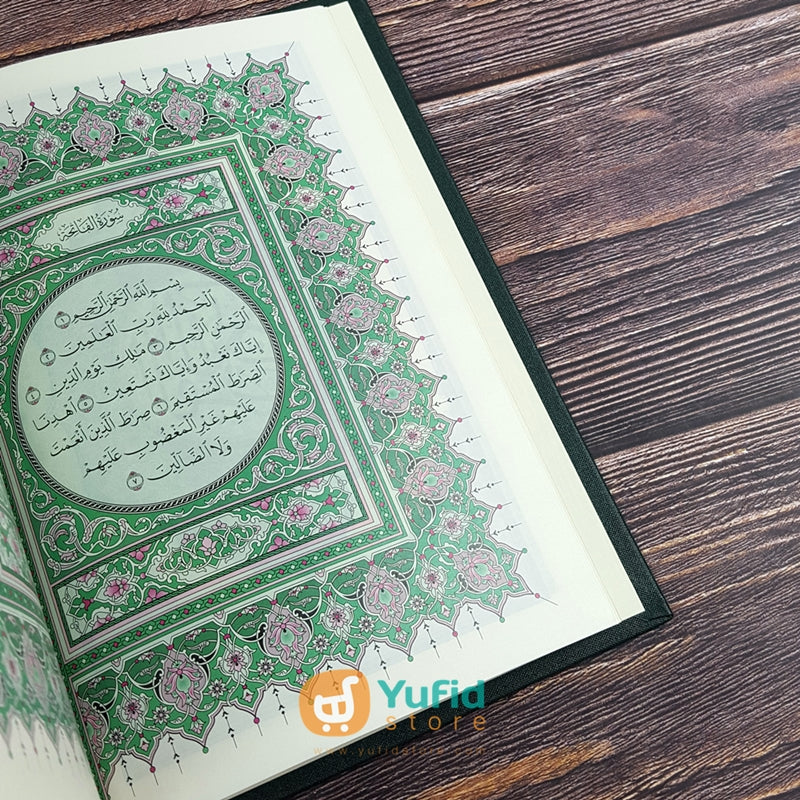 سُورَةُ الْفَاتِحَةِ
بِسْمِ اللَّهِ الرَّحْمَٰنِ الرَّحِيمِ ١
الْحَمْدُ لِلَّهِ رَبِّ الْعَالَمِينَ ٢
الرَّحْمَٰنِ الرَّحِيمِ ٣ مَالِكِ يَوْمِ الدِّينِ ٤
إِيَّاكَ نَعْبُدُ وَإِيَّاكَ نَسْتَعِينُ ٥ اهْدِنَا
الصِّرَاطَ الْمُسْتَقِيمَ ٦ صِرَاطَ الَّذِينَ أَنْعَمْتَ
عَلَيْهِمْ غَيْرِ الْمَغْضُوبِ عَلَيْهِمْ
وَلَا الضَّالِّينَ ٧
Yufid
store
www.yufidstore.com